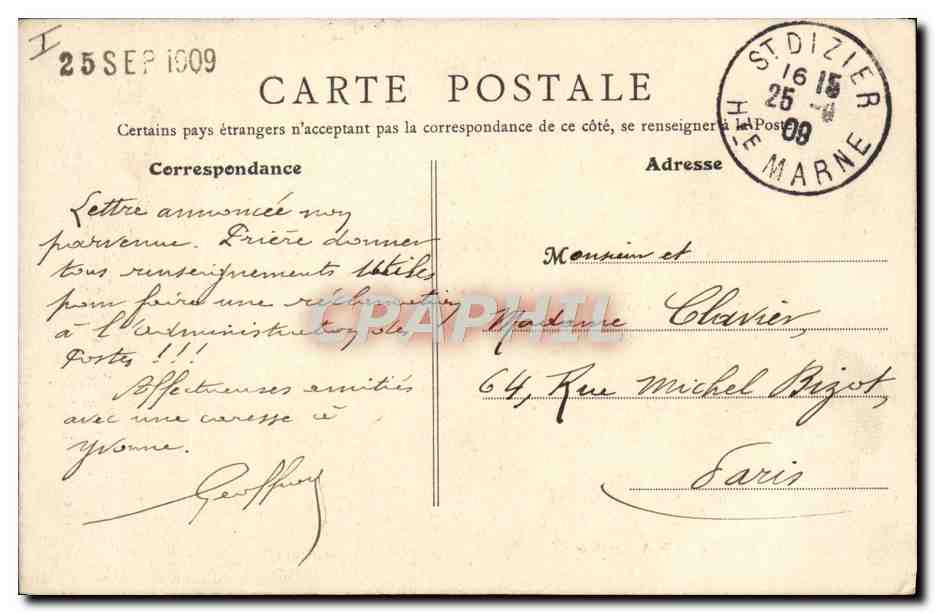 I
25 SEP 1909
ST DIZIER
16 15
25 -9
09
HTE MARNE
CARTE POSTALE
Certains pays étrangers n'acceptant pas la correspondance de ce côté, se renseigner à la Poste
Correspondance
Lettre annoncée non
parvenue. Prière donner
tous renseignements utiles
pour faire une réclamation
à l'administration des
Postes !!!
Affectueuses amitiés
avec une caresse à
Yvonne.
Geoffroy
Adresse
Monsieur et
Madame Clavier,
64, Rue Michel Bizot,
Paris
CPAPHIL